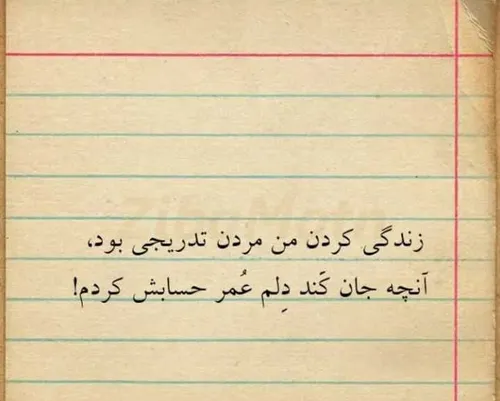 زندگی کردن من مردن تدریجی بود،
آنچه جان کَند دِلم عُمر حسابش کردم!